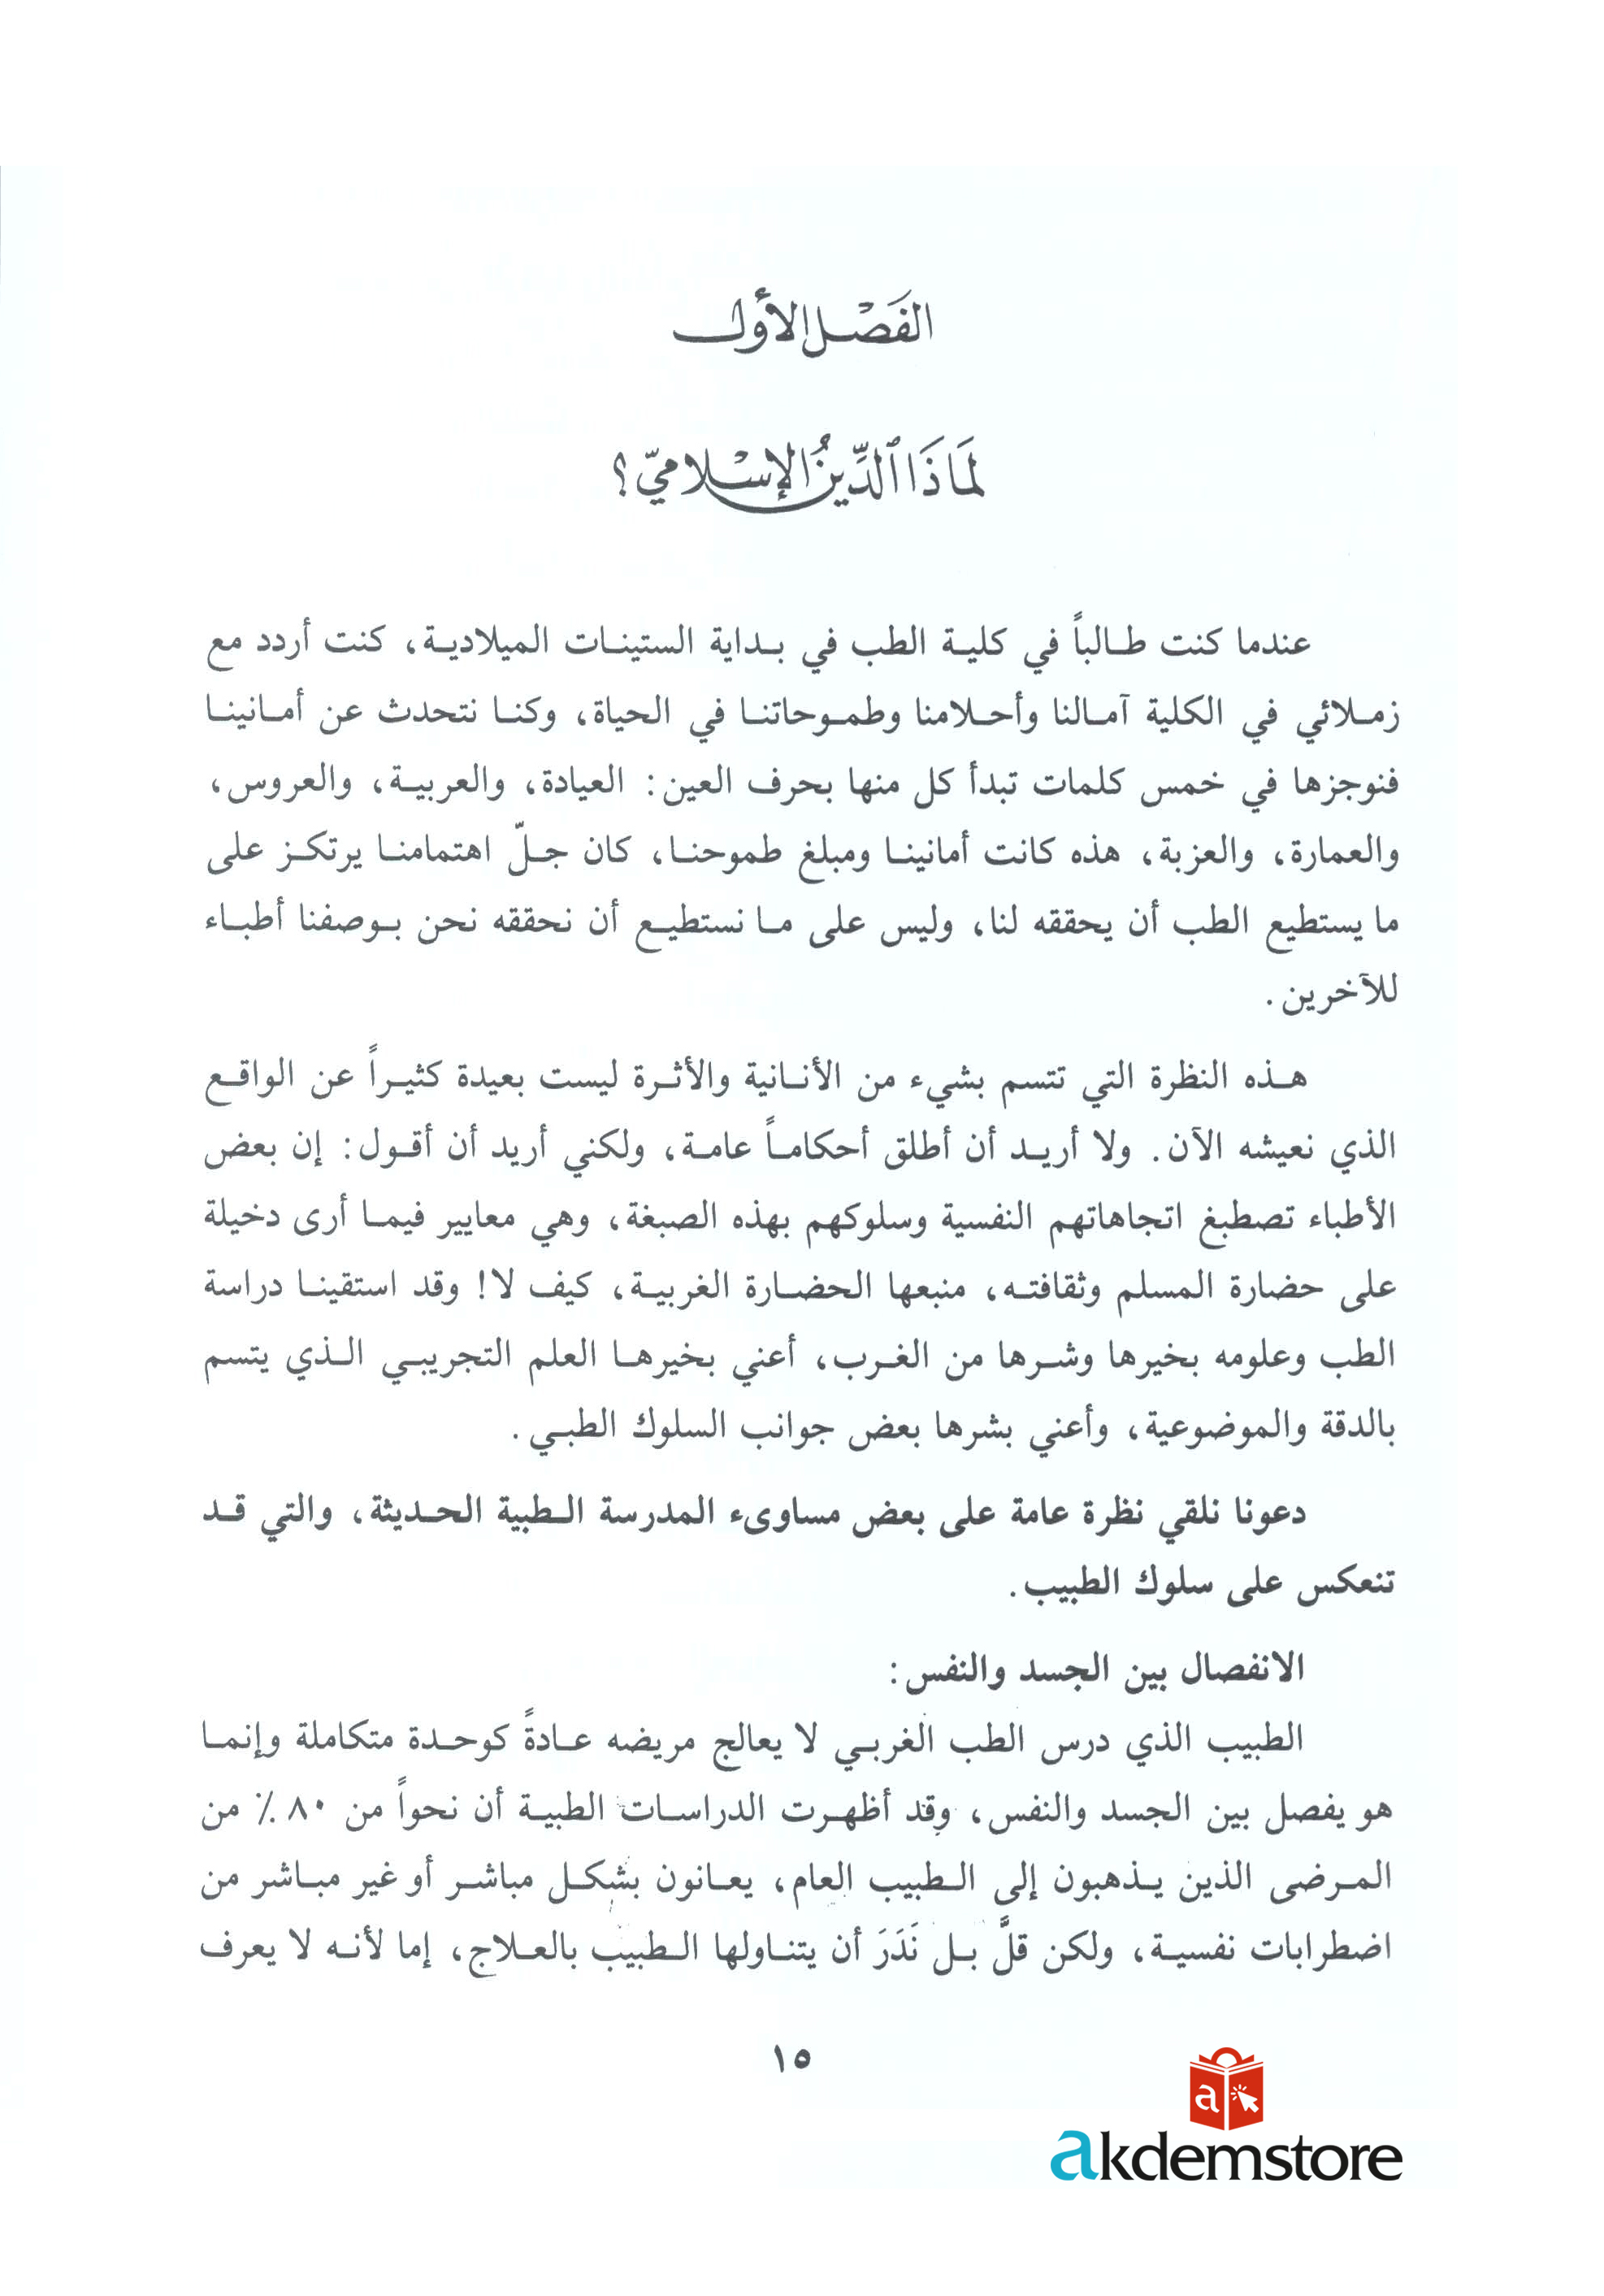 الفَصْل الأول
لمَاذَا الدِّينُ الإسْلاميّ؟
عندما كنت طالباً في كلية الطب في بداية الستينات الميلادية، كنت أردد مع
زملائي في الكلية آمالنا وأحلامنا وطموحاتنا في الحياة، وكنا نتحدث عن أمانينا
فنوجزها في خمس كلمات تبدأ كل منها بحرف العين: العيادة، والعربية، والعروس،
والعمارة، والعزبة، هذه كانت أمانينا ومبلغ طموحنا، كان جلّ اهتمامنا يرتكز على
ما يستطيع الطب أن يحققه لنا، وليس على ما نستطيع أن نحققه نحن بوصفنا أطباء
للآخرين.
هذه النظرة التي تتسم بشيء من الأنانية والأثرة ليست بعيدة كثيراً عن الواقع
الذي نعيشه الآن. ولا أريد أن أطلق أحكاماً عامة، ولكني أريد أن أقول: إن بعض
الأطباء تصطبغ اتجاهاتهم النفسية وسلوكهم بهذه الصبغة، وهي معايير فيما أرى دخيلة
على حضارة المسلم وثقافته، منبعها الحضارة الغربية، كيف لا! وقد استقينا دراسة
الطب وعلومه بخيرها وشرها من الغرب، أعني بخيرها العلم التجريبي الذي يتسم
بالدقة والموضوعية، وأعني بشرها بعض جوانب السلوك الطبي.
دعونا نلقي نظرة عامة على بعض مساوىء المدرسة الطبية الحديثة، والتي قد
تنعكس على سلوك الطبيب.
الانفصال بين الجسد والنفس:
الطبيب الذي درس الطب الغربي لا يعالج مريضه عادةً كوحدة متكاملة وإنما
هو يفصل بين الجسد والنفس، وقد أظهرت الدراسات الطبية أن نحواً من ٨٠٪ من
المرضى الذين يذهبون إلى الطبيب العام، يعانون بشكل مباشر أو غير مباشر من
اضطرابات نفسية، ولكن قلَّ بل نَدَرَ أن يتناولها الطبيب بالعلاج، إما لأنه لا يعرف
١٥
a
akdemstore